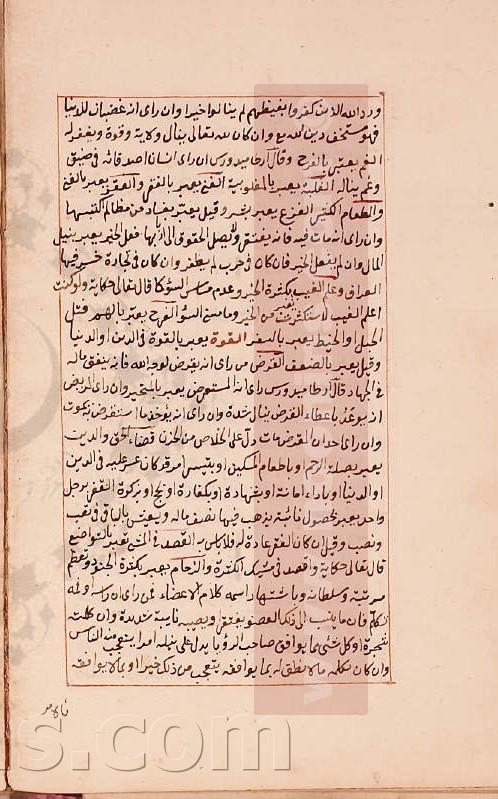 ورد الله الذين كفروا بغيظهم لم ينالوا خيرا وان راى انه غضبان للدنيا
فهو مستخف بدين الله وان كان لله تعالى ينال ولاية وقوة ويغفر له
الغم يعبر بالفرح وقال ارطاميدورس ان راى انسانا اصدقائه في ضيق
وغم يناله الغلبة يعبر بالمغلوبية الغنى يعبر بالفقر والفقر يعبر بالغنى
والطعام الكثير الفزع يعبر وقيل يعبر من مظالم اكتسبها
وان راى انه مات فيه فانه يفتقر ولا يصل الحقوق الى اربابها فعل الخير يعبر بنيل
المال وان لم يفعل الخير فان كان في حرب لم يظفر وان كان في تجارة خسر فيها
العراق وعلم الغيب بكثرة الخير وعدم مساس السوء كما قال تعالى حكاية ولو كنت
اعلم الغيب لاستكثرت من الخير وما مسني السوء الفرح يعبر بالهم فتل
الحبل او الخيط يعبر بالسفر القوة يعبر بالقوة في الدين والدنيا
وقيل يعبر بالضعف القرض من راى انه يقرض لوجه الله فانه ينفق ماله
في الجهاد قال ارطاميدورس راى ان المستقرض يعبر بالمتحير وان راى المريض
انه يوعد باعطاء القرض ينال شدة وان راى انه يؤخذ ما استقرض يموت
وان راى احد ان المقرض مات دل على الخلاص من الحزن قضاء الحق والدين
يعبر بصلة الرحم او باطعام المسكين او بتيسير امر قد كان عسر عليه في الدين
او الدنيا او باداء امانة او بشهادة او بكفارة او بحج او بزكوة القفز برجل
واحد يعبر بحصول نائبة يذهب فيها نصف ماله ويعيش بالباقي في تعب
ونصب وقيل ان كان القفز عادة له فلا باس به القصد في المشي يعبر بالتواضع
قال تعالى حكاية واقصد في مشيك الكثرة والزحام يعبر بكثرة الجنود وتعظم
مرتبة وسلطانه كلام الاعضاء من راى ان راسه او فمه
تكلم فان ما ينسب الى ذلك العضو يفتقر ويصيبه نايبة شديدة وان كلمت
شجرة او كل شئ بما يوافق صاحب الرؤيا يدل على نيله امرا يتعجب منه الناس
وان كان يكلمه ما لا ينطق له بما يوافقه يتعجب من ذلك خيرا او بما لا يوافقه
فالامر
s.com